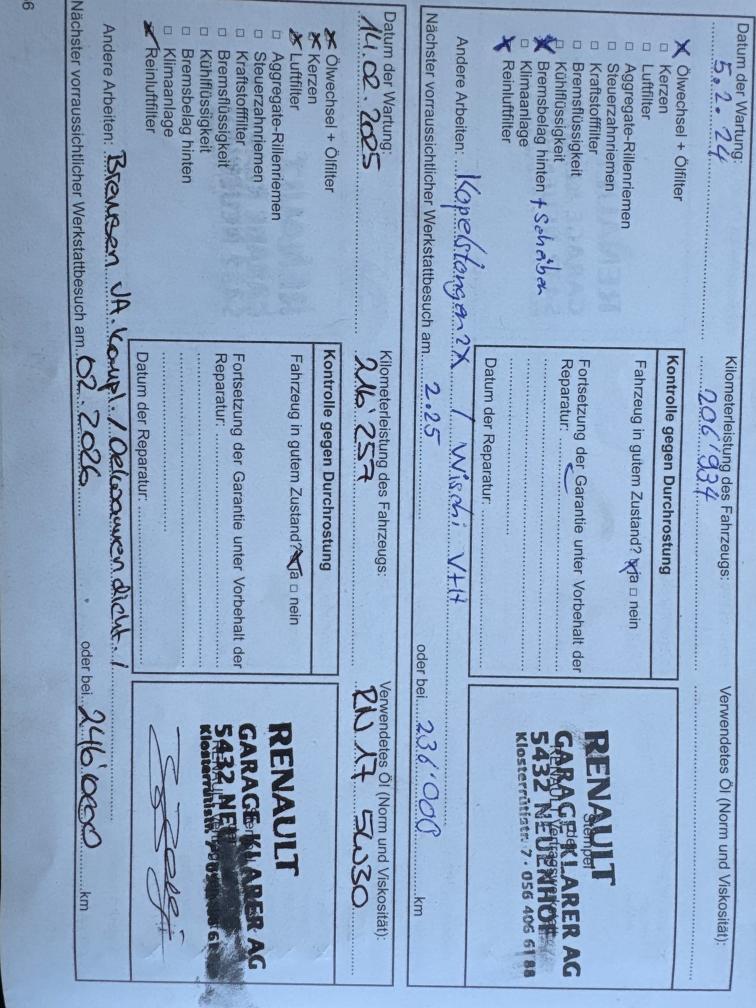 Datum der Wartung: 5.2.24
Kilometerleistung des Fahrzeugs: 206'934
Verwendetes Öl (Norm und Viskosität):
Ölwechsel + Ölfilter
Kerzen
Luftfilter
Aggregate-Rillenriemen
Steuerzahnriemen
Kraftstofffilter
Bremsflüssigkeit
Kühlflüssigkeit
Bremsbelag hinten + Scheiben
Klimaanlage
Reinluftfilter
Kontrolle gegen Durchrostung
Fahrzeug in gutem Zustand? ja nein
Fortsetzung der Garantie unter Vorbehalt der
Reparatur:
Datum der Reparatur:
Stempel
RENAULT
GARAGE KLARER AG
5432 NEUENHOF
Klosterrütistr. 7 · 056 406 61 88
Andere Arbeiten: Kopelstangen 2X / Wischi V+H
Nächster vorraussichtlicher Werkstattbesuch am 2.25 oder bei 236'000 km
Datum der Wartung: 14.02.2025
Kilometerleistung des Fahrzeugs: 216'257
Verwendetes Öl (Norm und Viskosität): RN 17 5W30
Ölwechsel + Ölfilter
Kerzen
Luftfilter
Aggregate-Rillenriemen
Steuerzahnriemen
Kraftstofffilter
Bremsflüssigkeit
Kühlflüssigkeit
Bremsbelag hinten
Klimaanlage
Reinluftfilter
Kontrolle gegen Durchrostung
Fahrzeug in gutem Zustand? ja nein
Fortsetzung der Garantie unter Vorbehalt der
Reparatur:
Datum der Reparatur:
RENAULT
GARAGE KLARER AG
5432 NEU
Klosterrütistr. 7
Andere Arbeiten: Bremsen VA. kompl. / Oelwannendicht. /
Nächster vorraussichtlicher Werkstattbesuch am 02.2026 oder bei 246'000 km